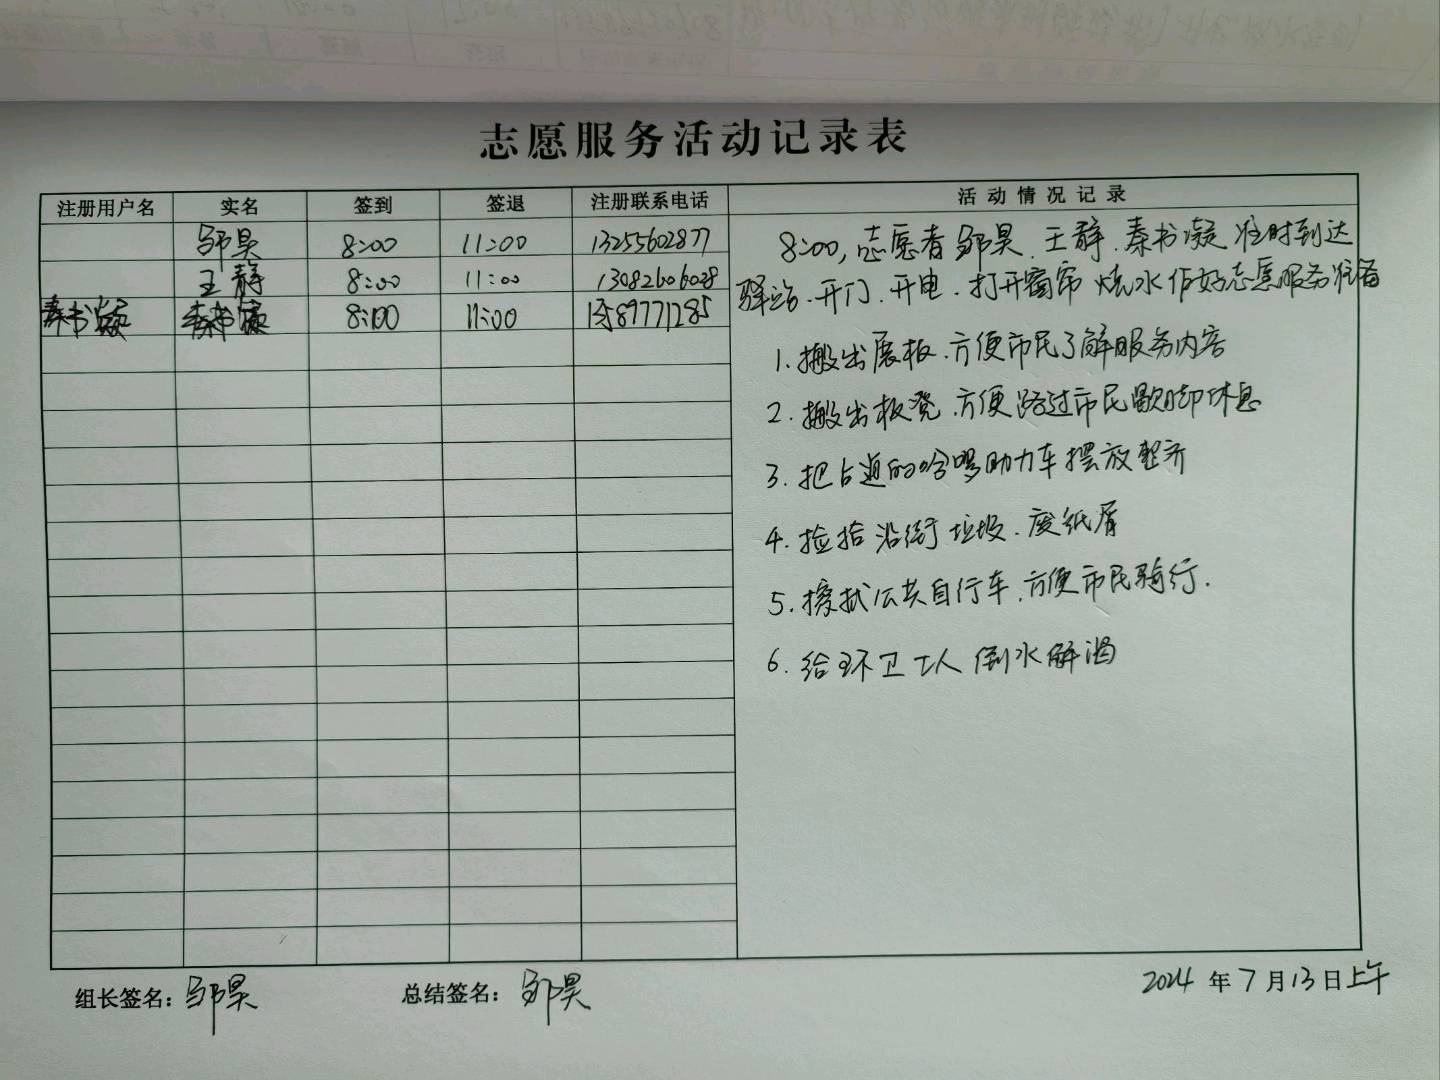 志愿服务活动记录表
注册用户名 实名 签到 签退 注册联系电话 活动情况记录
邹昊 8:00 11:00 13255602877
王静 8:00 11:00 13082606028
秦书凝 秦书凝 8:00 11:00 15897771285
8:00,志愿者邹昊、王静、秦书凝准时到达
驿站、开门、开电、打开窗帘 烧水作好志愿服务准备
1. 搬出展板、方便市民了解服务内容
2. 搬出板凳、方便路过市民歇脚休息
3. 把占道的哈啰助力车摆放整齐
4. 捡拾沿街垃圾、废纸屑
5. 擦拭公共自行车、方便市民骑行.
6. 给环卫工人倒水解渴
组长签名:邹昊 总结签名:邹昊 2024年7月13日上午